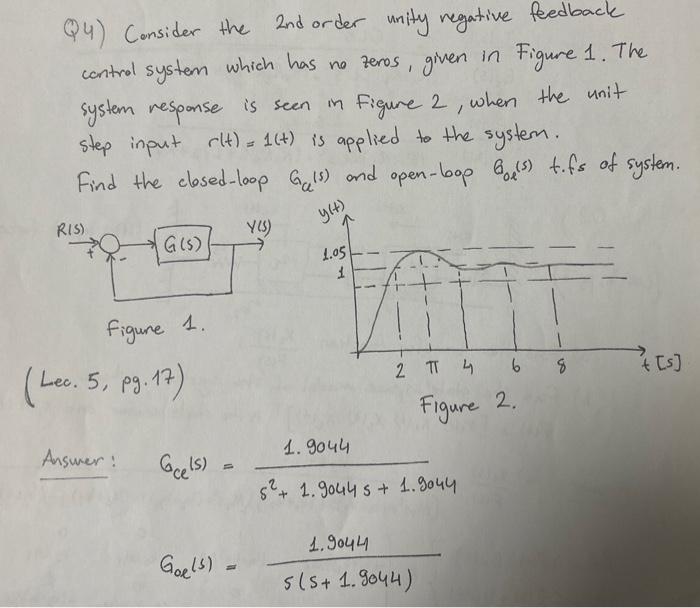 Q4) Consider the 2nd order unity negative feedback
control system which has no zeros, given in Figure 1. The
system response is seen in Figure 2, when the unit
step input r(t) = 1(t) is applied to the system.
Find the closed-loop Gcl(s) and open-loop Gol(s) t.fs of system.
R(s) + - G(s) Y(s)
y(t)
1.05
1
2 π 4 6 8 t [s]
Figure 1.
Figure 2.
(Lec. 5, pg. 17)
Answer: Gcl(s) = 1.9044
s² + 1.9044 s + 1.9044
Gol(s) = 1.9044
s(s + 1.9044)